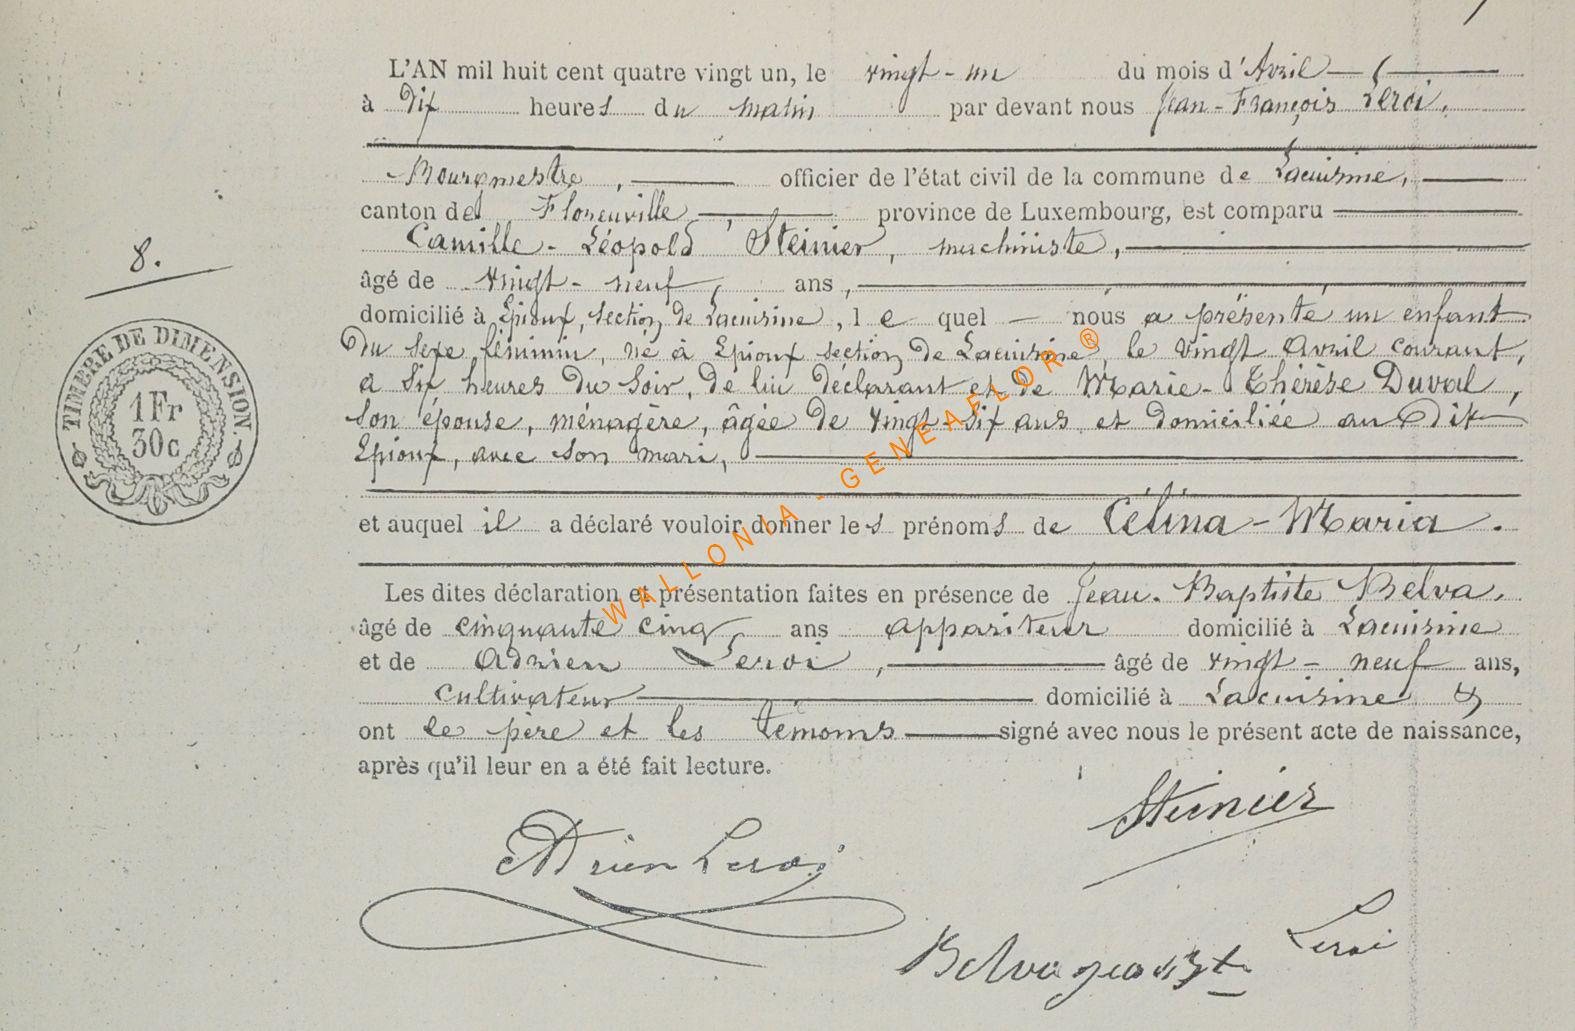 L'AN mil huit cent quatre vingt un, le vingt-un du mois d'Avril
à dix heures du matin par devant nous Jean-François Leroi,
Bourgmestre, officier de l'état civil de la commune de Lacuisine,
canton de Florenville, province de Luxembourg, est comparu
Camille-Léopold Steinier, machiniste,
8.
âgé de vingt-neuf, ans,
domicilié à Epioux, section de Lacuisine, le quel nous a présenté un enfant
Du sexe féminin, né à Epioux section de Lacuisine, le vingt Avril courant,
à six heures du soir, de lui déclarant et de Marie-Thérèse Duval,
son épouse, ménagère, âgée de vingt-six ans et domiciliée au dit
Epioux, avec son mari,
TIMBRE DE DIMENSION.
1Fr
30c
et auquel il a déclaré vouloir donner les prénoms de Célina-Maria.
Les dites déclaration et présentation faites en présence de Jean-Baptiste Belva,
âgé de cinquante cinq, ans appariteur domicilié à Lacuisine
et de Adrien Leroi, âgé de vingt-neuf ans,
cultivateur domicilié à Lacuisine &
ont le père et les témoins signé avec nous le présent acte de naissance,
après qu'il leur en a été fait lecture.
Steinier
Adrien Leroi
Leroi
Belva
WALLONIA - GENEAFLOR ®